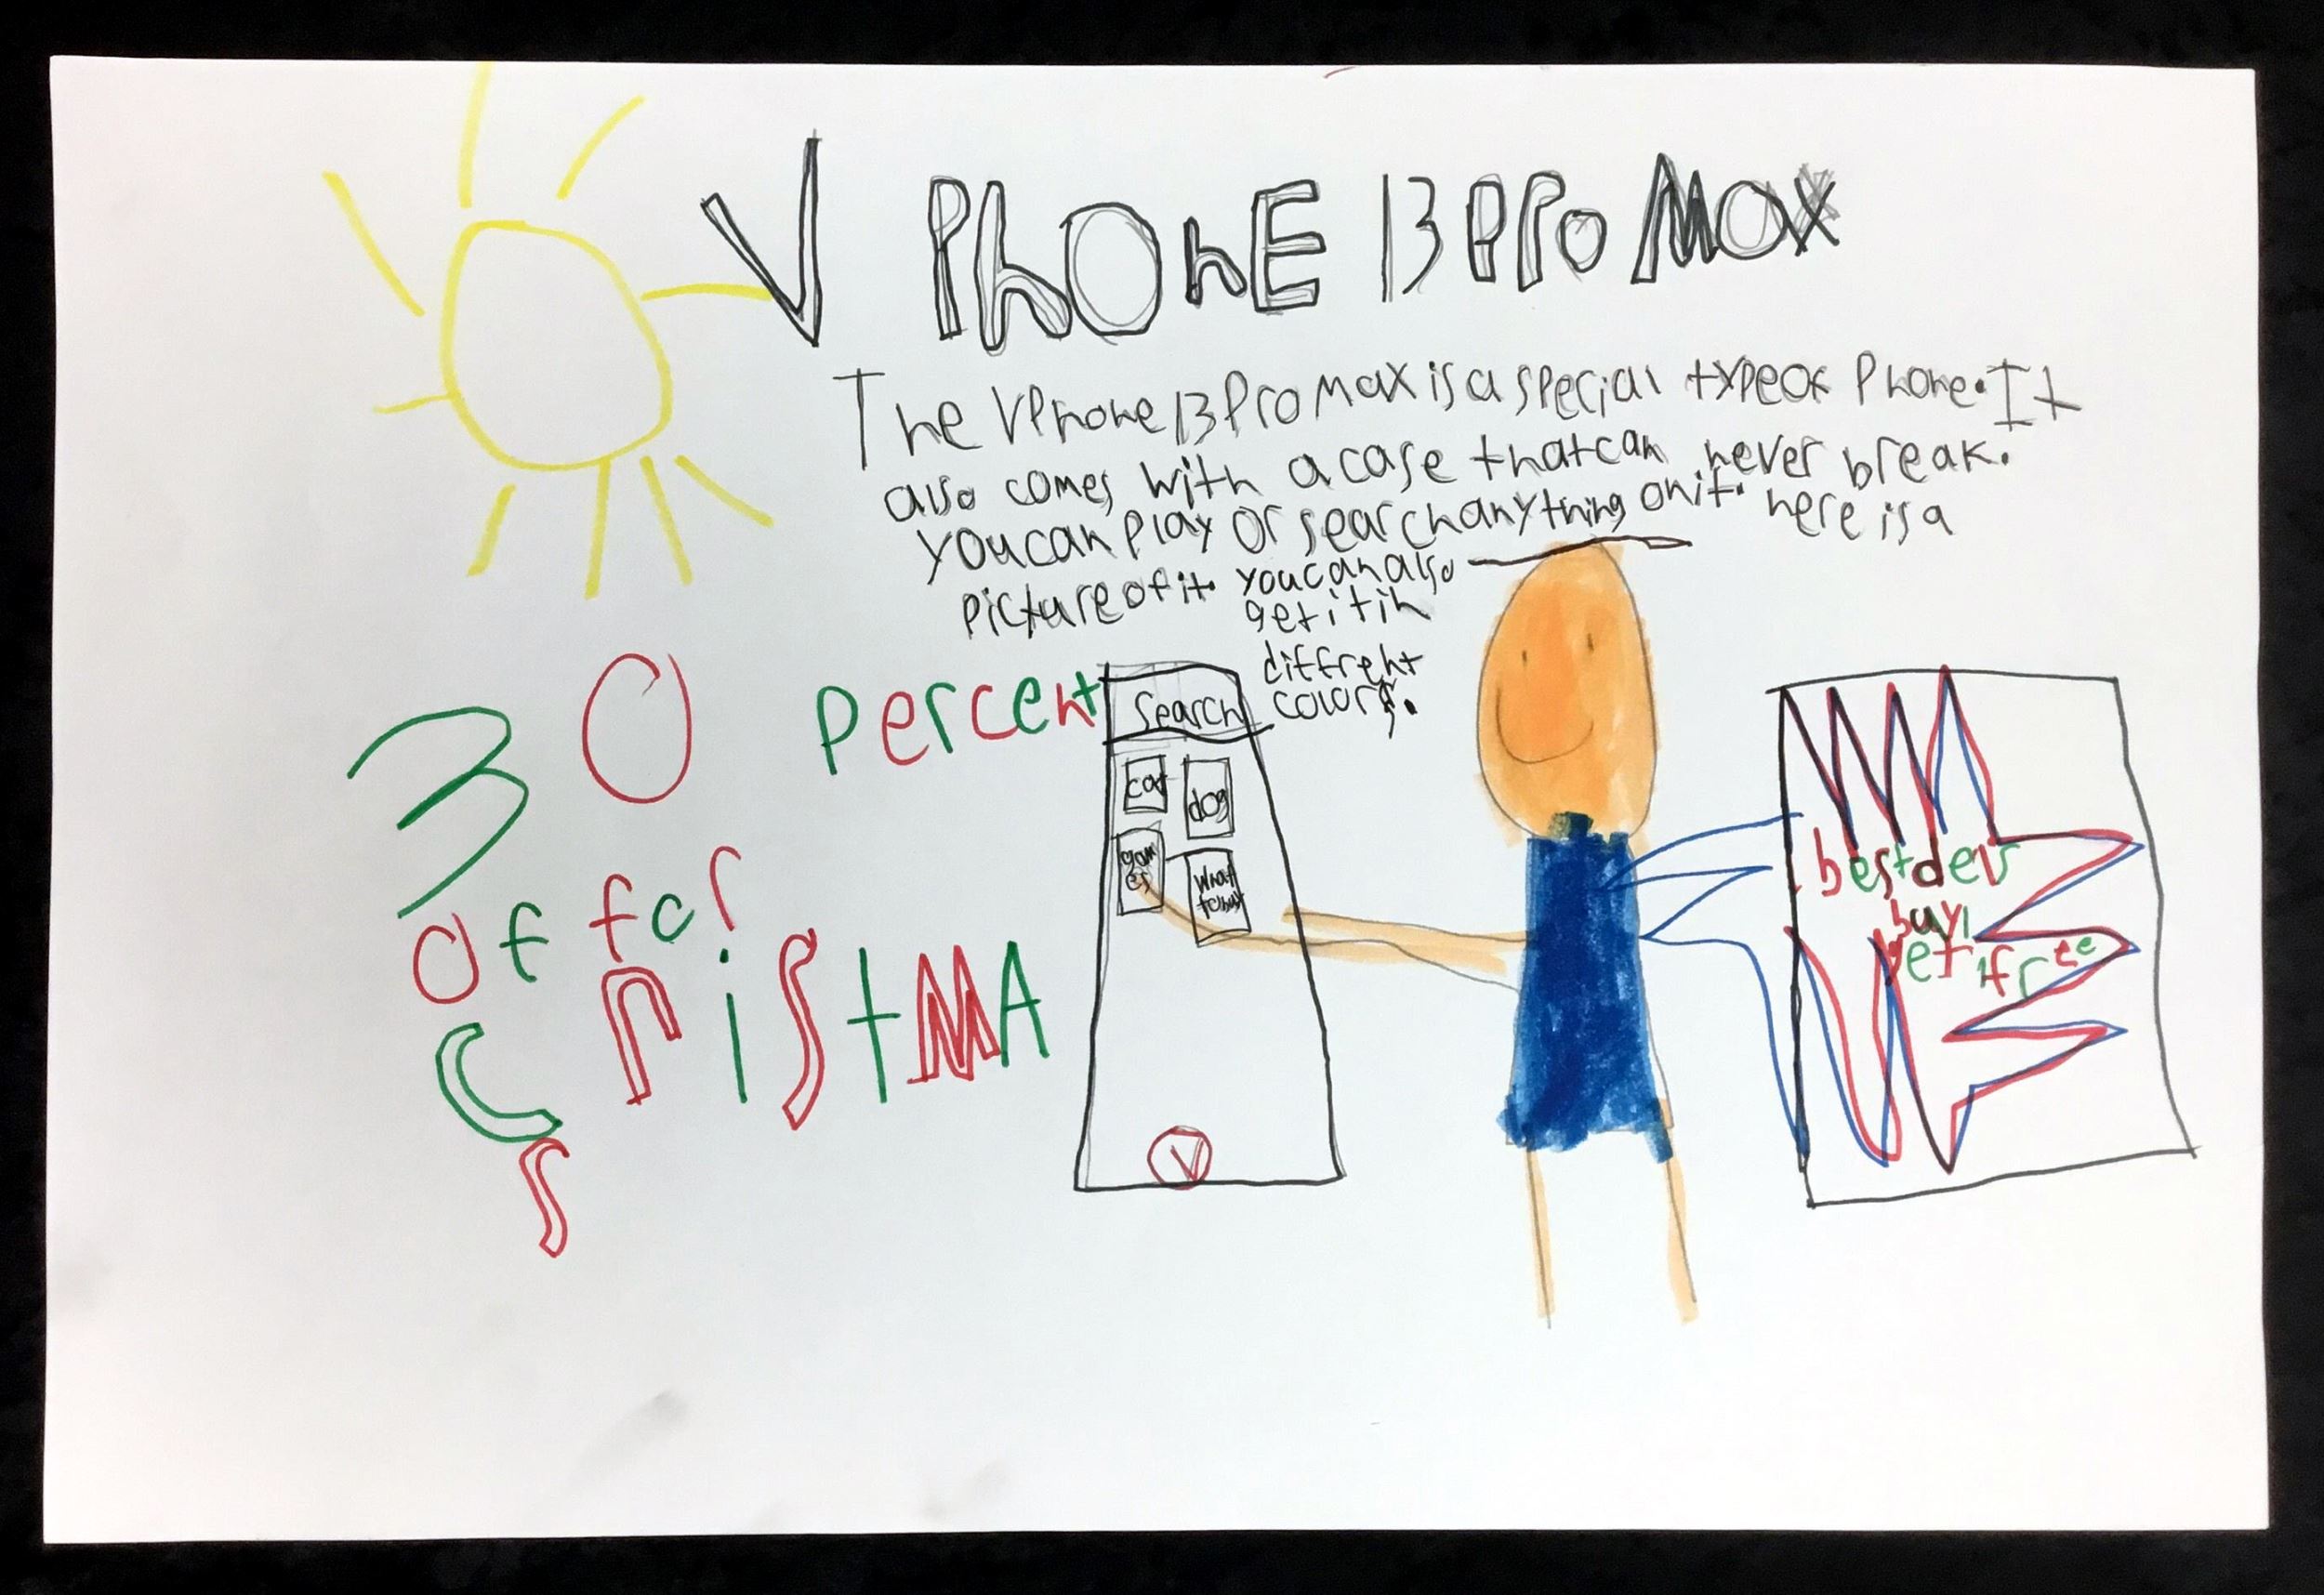 V PhOnE 13 Pro MAX
The VPhone 13 Pro Max is a special type of Phone. It
also comes with a case that can never break.
you can play or search anything on it. here is a
picture of it. you can also
get it in
diffrent
colors.
30 percent
of for
christmA
s
Search
cat dog
gam
es
What
V
best der
buy 1
get 1 free